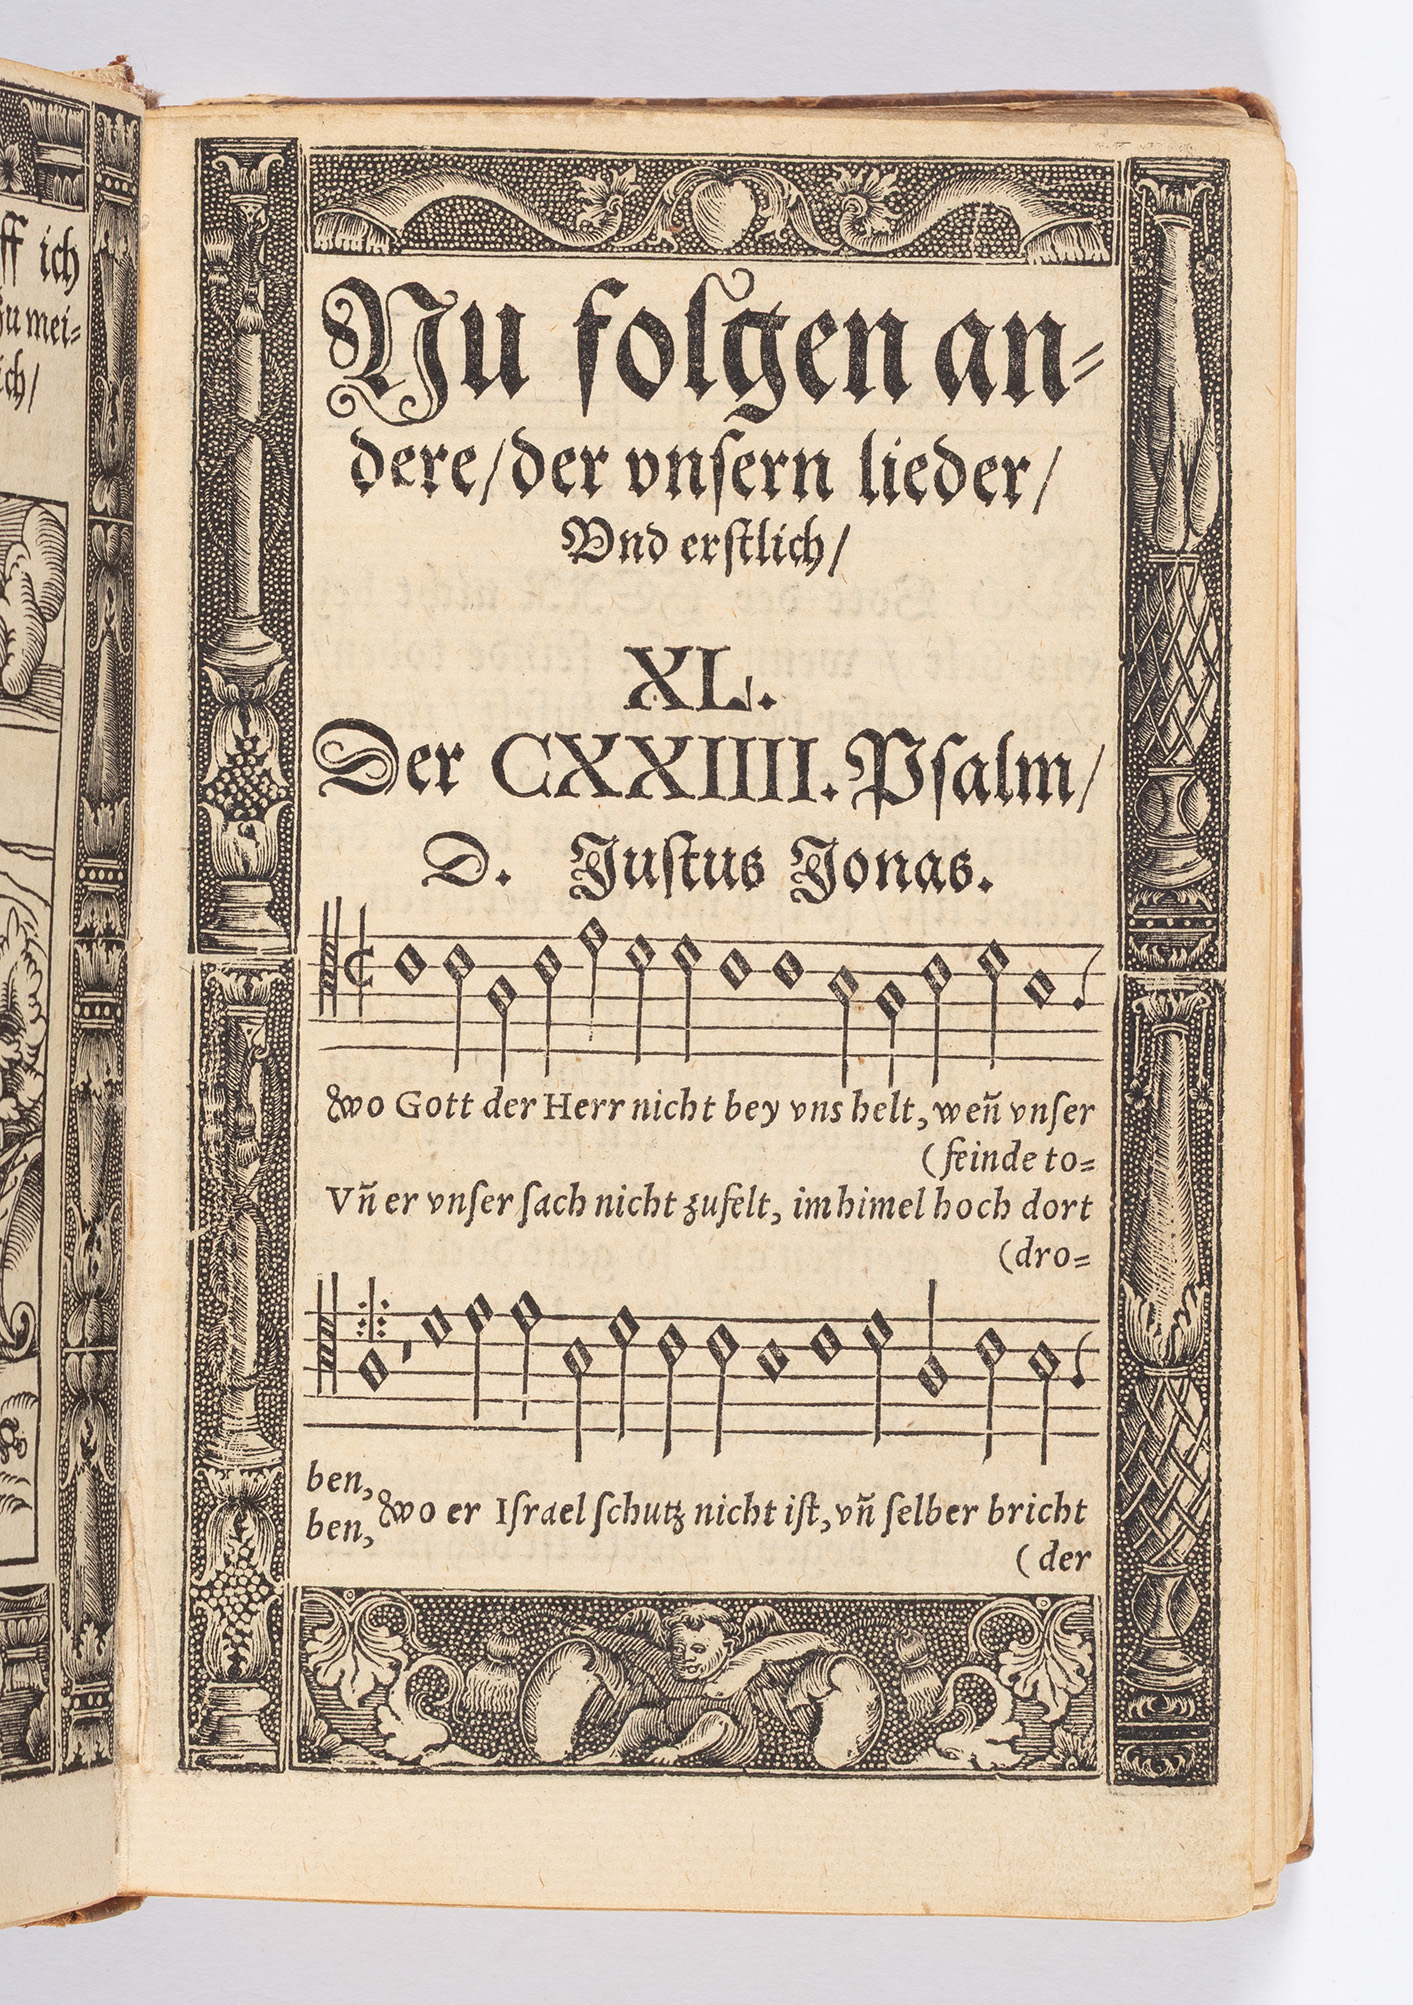 ff ich
zu mei=
ich/
Nu folgen an=
dere/der vnſern lieder/
Vnd erſtlich/
XL.
Der CXXIIII. Pſalm/
D. Juſtus Jonas.
Wo Gott der Herr nicht bey vns helt, weñ vnſer
(feinde to=
Vñ er vnſer ſach nicht zufelt, im himel hoch dort
(dro=
ben,
ben, Wo er Iſrael ſchutz nicht iſt, vñ ſelber bricht
(der